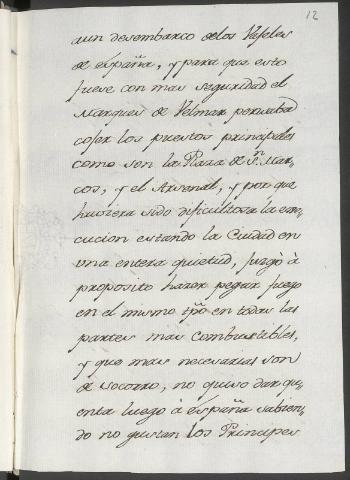 12
aun desembarco delos Vaseles
de españa, y para que esto
fuese con mas seguridad el
Marques de Velmar pensaba
coser los puestos principales
como son la Plaza de Sn. Mar,,
cos, y el Arsenal, y por que
huviera sido dificultosa la exe,,
cucion estando la Ciudad en
una entera quietud, juzgò à
proposito hazer pegar fuego
en el mismo tpo en todas las
partes mas combustibles,
y que mas necesarias son
de socorro, no quiso dar qu,,
enta luego à españa sabien,,
do no gustan los Principes